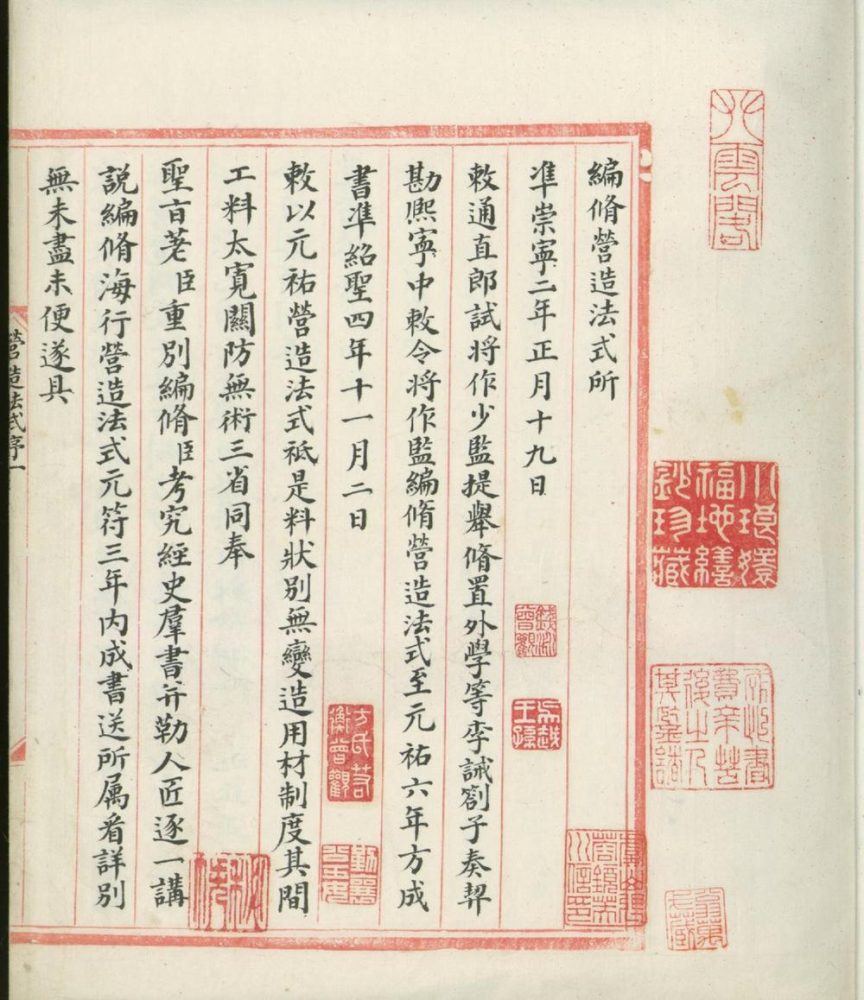 編脩營造法式所
凖崇寧二年正月十九日
敕通直郎試將作少監提舉脩置外學等李誡劄子奏契
勘熈寧中敕令將作監編脩營造法式至元祐六年方成
書凖紹聖四年十一月二日
敕以元祐營造法式祗是料狀别無變造用材制度其間
工料太寛關防無術三省同奉
聖㫖荖臣重别編脩臣考究經史羣書并勒人匠逐一講
說編脩海行營造法式元符三年内成書送所属看詳别
無未盡未便遂具
營造法式序一
小琅嬛
福地繕
鈔珍藏